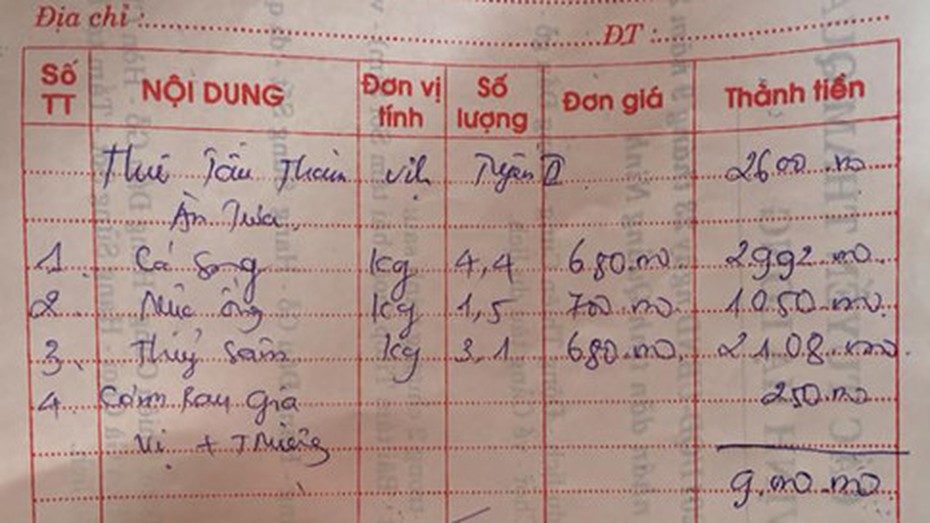 Địa chỉ : ĐT :
Số TT NỘI DUNG Đơn vị tính Số lượng Đơn giá Thành tiền
Thuê Tầu Thăm Vịh Tuyến II 2600.000
Ăn Trưa
1 Cá Song kg 4,4 680.000 2992.000
2. Mực ống kg 1,5 700.000 1050.000
3. Thuỷ sâm kg 3,1 680.000 2108.000
4. Cơm Rau gia 250.000
Vị +
9.000.000